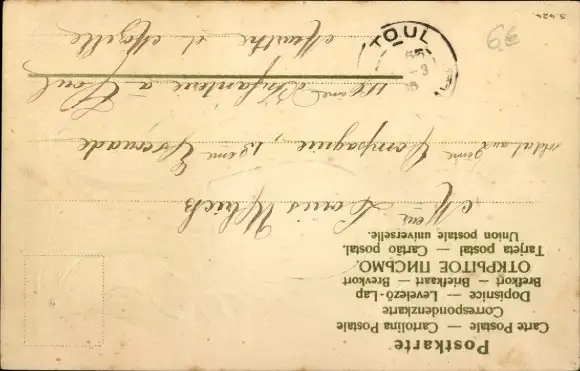 Postkarte
Carte Postale — Cartolina Postale
Correspondenzkarte
Dopisnice — Levelező-Lap
Brefkort — Briefkaart — Brevkort
ОТКРЫТОЕ ПИСЬМО.
Tarjeta postal — Cartão postal.
Union postale universelle.
Mr Louis Ulrich
soldat aux 3ème Compagnie, 13ème Escouade
ème d'Infanterie à Toul
Meurthe et Moselle
TOUL
6€